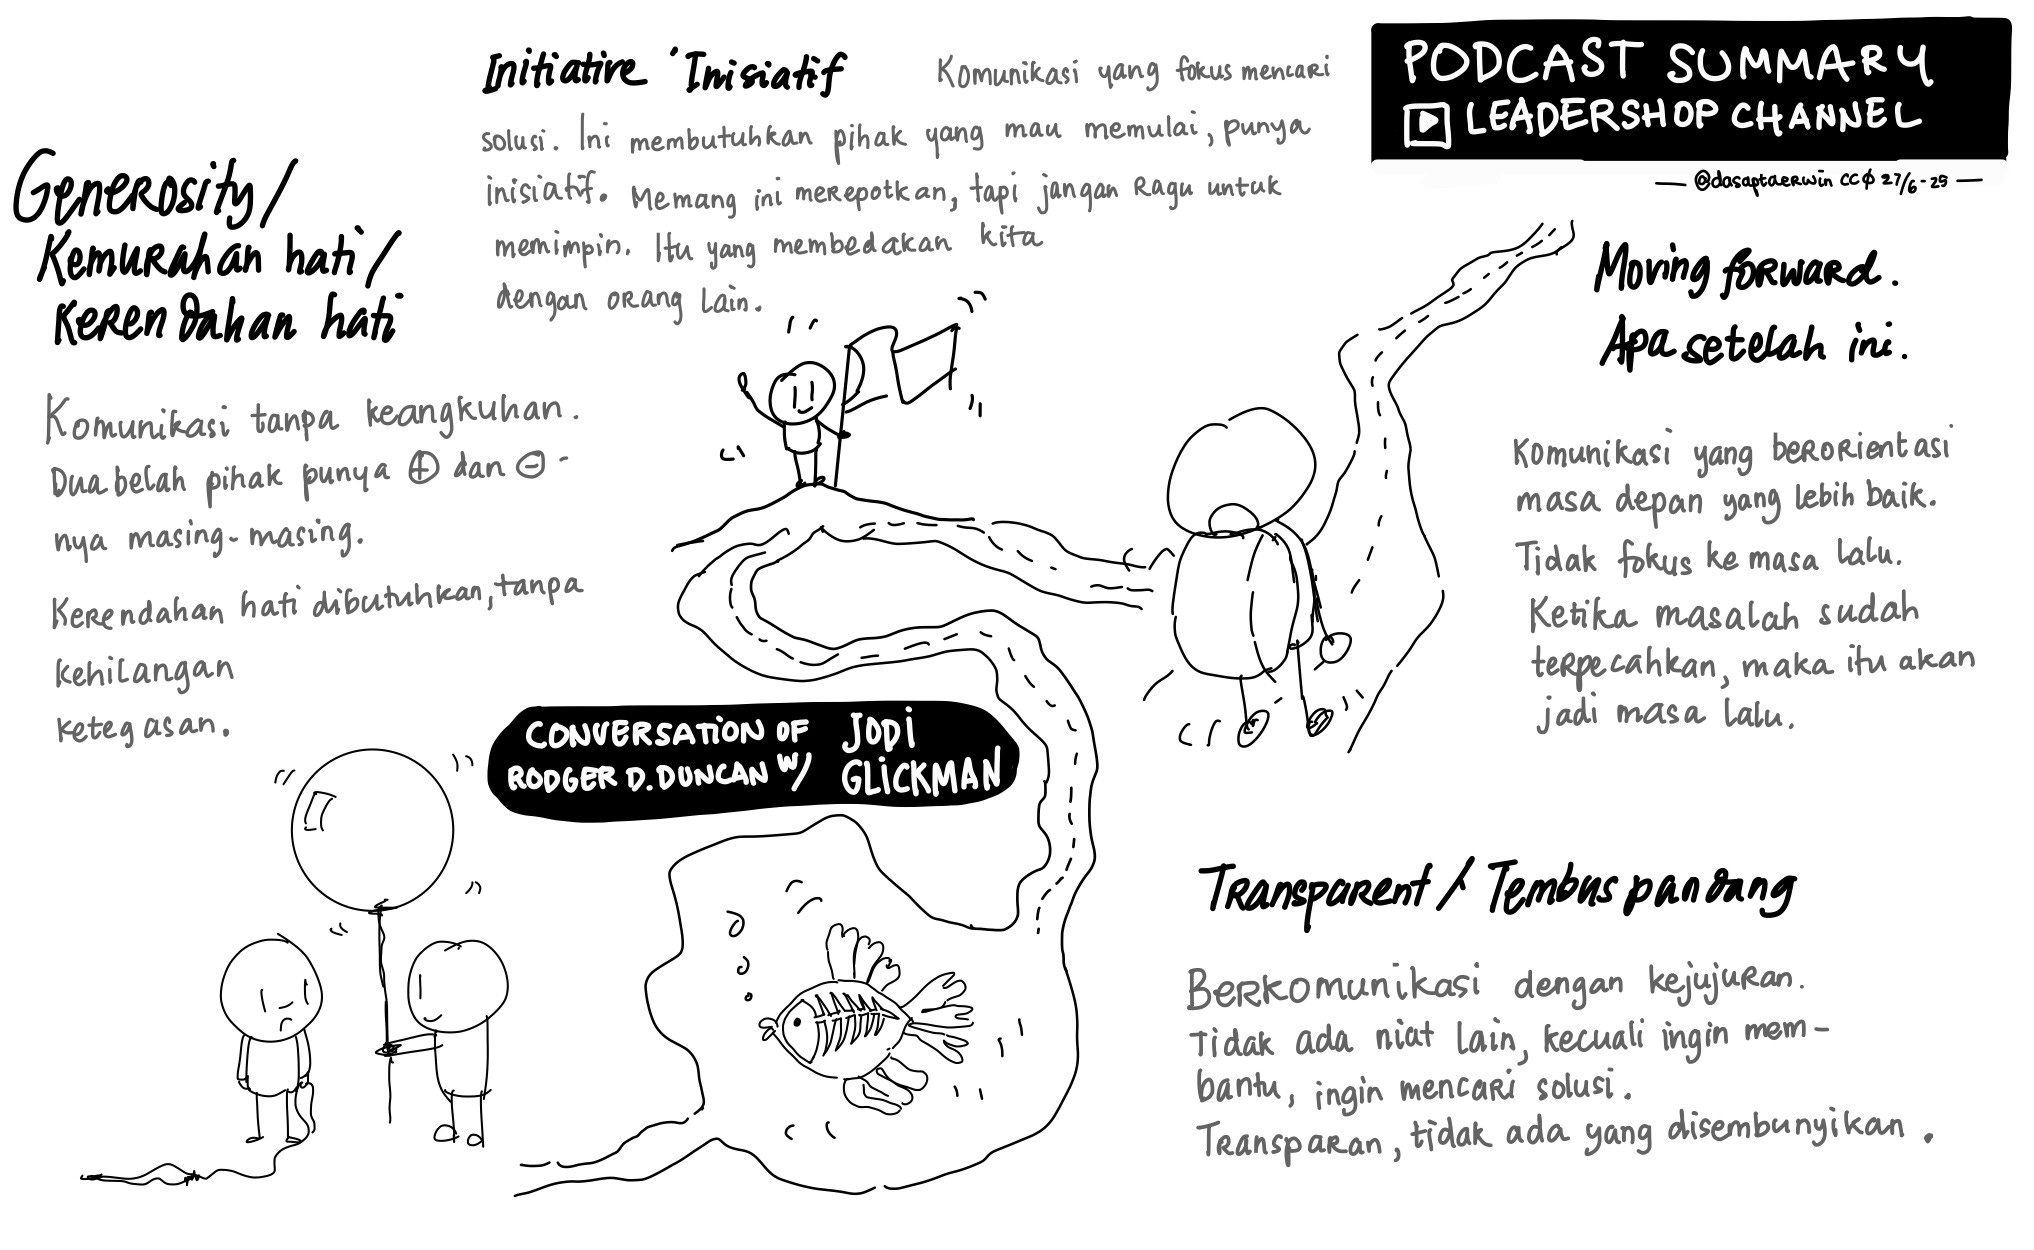 PODCAST SUMMARY
LEADERSHOP CHANNEL
— @dasaptaerwin CCØ 27/6-25 —
Generosity/
Kemurahan hati/
Kerendahan hati
Komunikasi tanpa keangkuhan.
Dua belah pihak punya ⊕ dan ⊖ -
nya masing-masing.
Kerendahan hati dibutuhkan, tanpa
kehilangan
ketegasan.
Initiative 'Inisiatif
Komunikasi yang fokus mencari
solusi. Ini membutuhkan pihak yang mau memulai, punya
inisiatif. Memang ini merepotkan, tapi jangan ragu untuk
memimpin. Itu yang membedakan kita
dengan orang lain.
Moving forward.
Apa setelah ini.
Komunikasi yang berorientasi
masa depan yang lebih baik.
Tidak fokus ke masa lalu.
Ketika masalah sudah
terpecahkan, maka itu akan
jadi masa lalu.
CONVERSATION OF JODI
RODGER D. DUNCAN W/ GLICKMAN
Transparent / Tembus pandang
Berkomunikasi dengan kejujuran.
Tidak ada niat lain, kecuali ingin mem-
bantu, ingin mencari solusi.
Transparan, tidak ada yang disembunyikan.